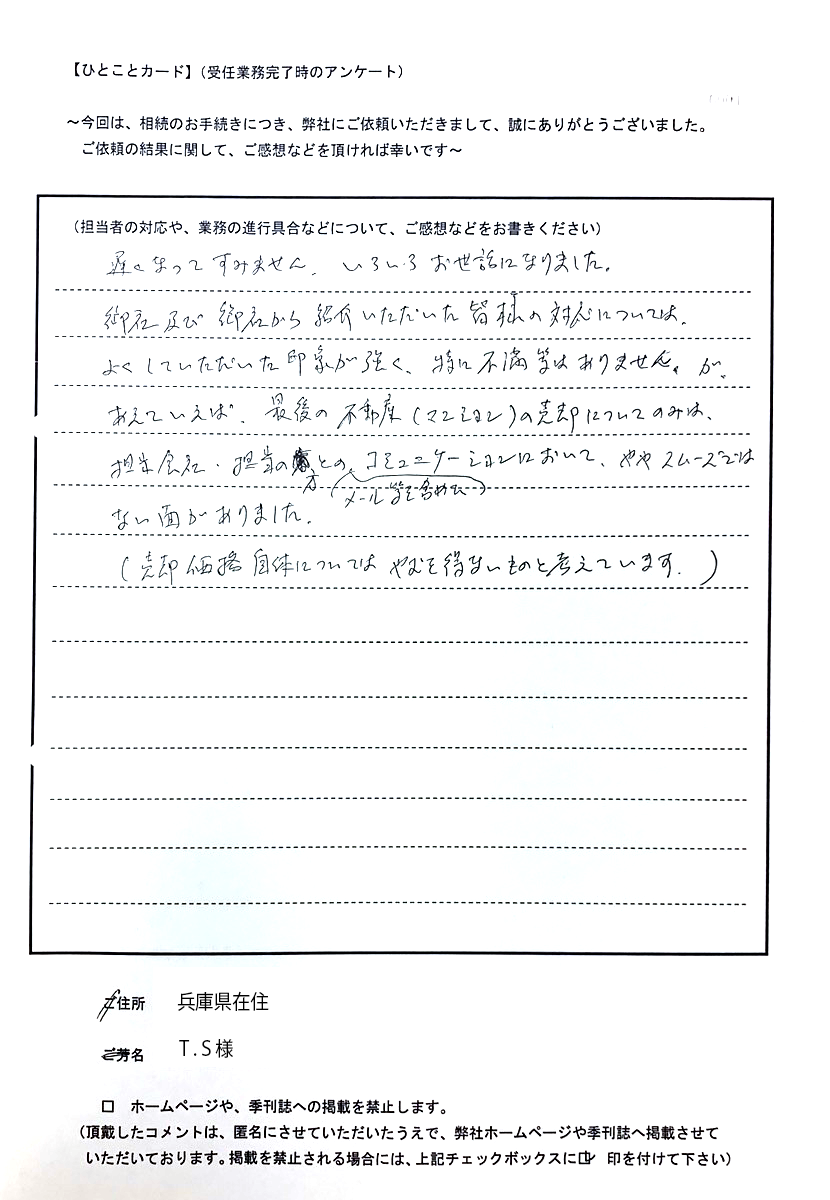 【ひとことカード】（受任業務完了時のアンケート）
～今回は、相続のお手続きにつき、弊社にご依頼いただきまして、誠にありがとうございました。
ご依頼の結果に関して、ご感想などを頂ければ幸いです～
（担当者の対応や、業務の進行具合などについて、ご感想などをお書きください）
遅くなってすみません。いろいろお世話になりました。
御社及び御社から紹介いただいた皆様の対応については、
よくしていただいた印象が強く、特に不満等はありません。が、
あえていえば、最後の不動産（マンション）の売却についてのみは、
担当会社・担当の方との、コミュニケーションにおいて、ややスムーズでは
（メール等を含めて）
ない面がありました。
（売却価格自体についてはやむを得ないものと考えています。）
住所 兵庫県在住
芳名 T.S様
□ ホームページや、季刊誌への掲載を禁止します。
（頂戴したコメントは、匿名にさせていただいたうえで、弊社ホームページや季刊誌へ掲載させて
いただいております。掲載を禁止される場合には、上記チェックボックスに☑ 印を付けて下さい）